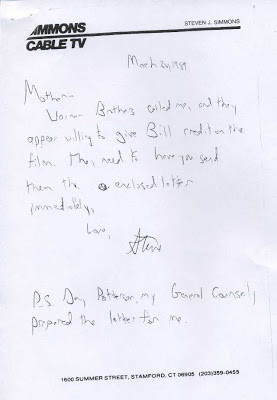 SIMMONS
CABLE TV
STEVEN J. SIMMONS
March 20, 1989
Mother—
Warner Brothers called me, and they
appear willing to give Bill credit on the
film. They need to have you send
them the enclosed letter
immediately,
Love,
Steve
P.S. Day Patterson, my General Counsel,
prepared the letter for me.
1600 SUMMER STREET, STAMFORD, CT 06905 (203) 359-0455